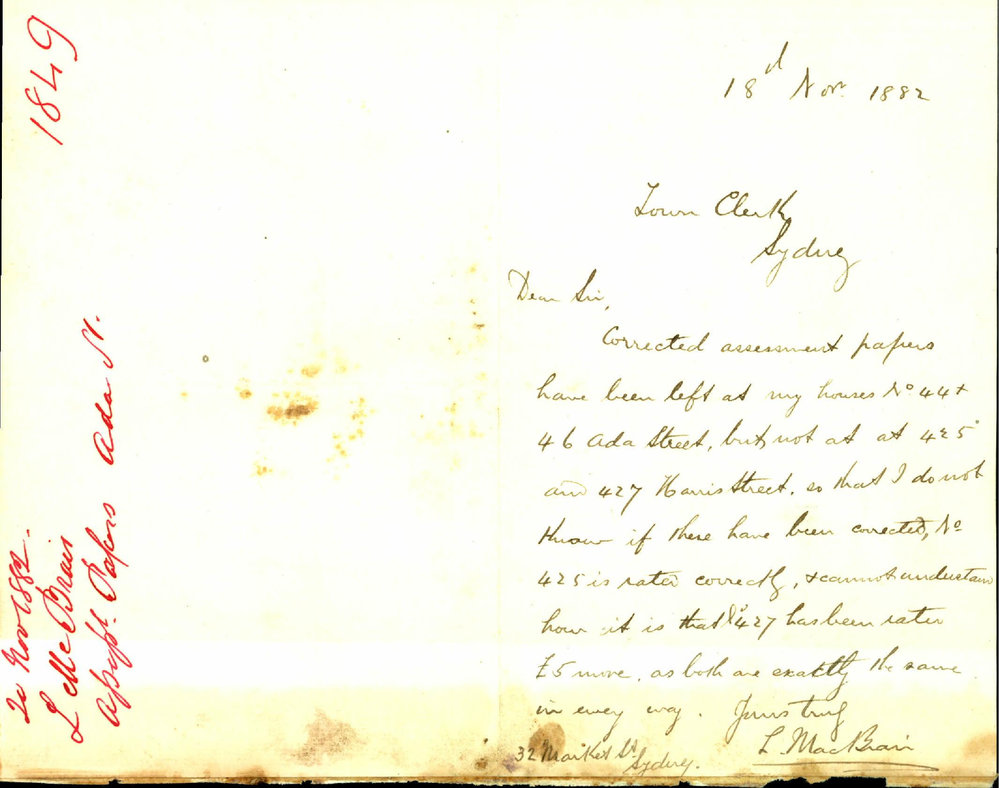 1849
20 Nov 1882.
L McBrair
Assesst. Papers Ada St.
18d Nov. 1882
Town Clerk
Sydney
Dear Sir,
Corrected assessment papers
have been left at my houses No 44 +
46 Ada Street, but not at at 425
and 427 Harris Street, so that I do not
know if these have been corrected, No
425 is rated correctly, + cannot understand
how it is that No 427 has been rated
£5 more, as both are exactly the same
in every way. Yours truly
L. MacBrair
32 Market St.
Sydney.